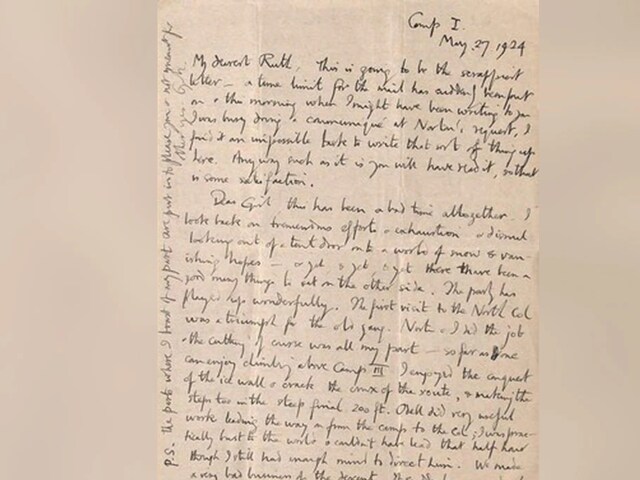 Camp I.
May. 27 1924
My dearest Ruth, This is going to be the scrappiest
letter — a time limit for the mail has suddenly been put
on & the morning when I might have been writing to you
I was busy doing a communiqué at Norton's request, I
find it an impossible task to write that sort of thing up
here. Anyway such as it is you will have read it, so that
is some satisfaction.
Dear Girl this has been a bad time altogether. I
look back on tremendous efforts & exhaustion & dismal
looking out of a tent door onto a world of snow & van-
ishing hopes — & yet, & yet, & yet there have been a
good many things to set on the other side. The party has
played up wonderfully. The first visit to the North Col
was a triumph for the old gang. Norton & I did the job
& the cutting of course was all my part — so far as one
can enjoy climbing above Camp III I enjoyed the conquest
of the ice wall & crack, the crux of the route, & making the
steps too in the steep final 200 ft. Odell did very useful
work leading the way on from the camp to the Col; I was prac-
tically bust to the world & couldn't have lead that half hour
though I still had enough mind to direct him. We made
a very bad business of the descent.
P.S. The parts where I boast of my part are put in to please you & not meant for
other eyes.